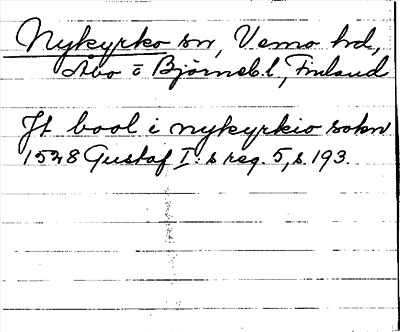 Nykyrko sn, Vemo hd,
Åbo o Björneb.l, Finland
Jt bool i nykyrkio sokn
1528 Gustaf I:s reg. 5, s. 193.